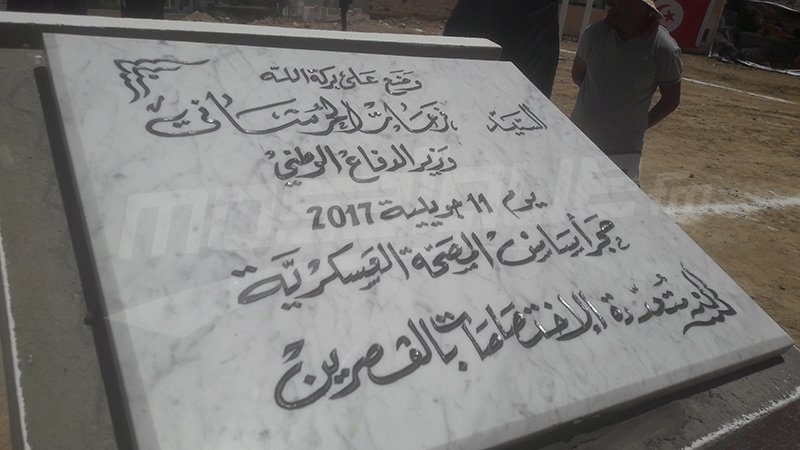 وضع على بركة الله
السيد فرحات الحرشاني
وزير الدفاع الوطني
يوم 11 جويلية 2017
حجر أساس المصحة العسكرية
متعددة الاختصاصات بالقصرين